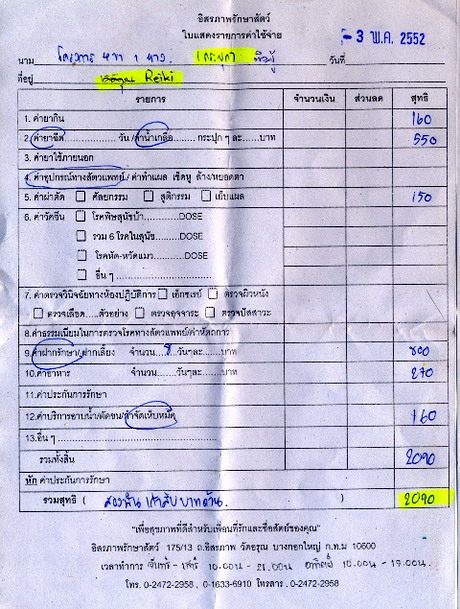 อิสรภาพรักษาสัตว์
ใบแสดงรายการค่าใช้จ่าย
- 3 พ.ค. 2552
นาม โครงการ หมา 1 วันที่
ที่อยู่ Reiki
รายการ จำนวนเงิน ส่วนลด สุทธิ
1. ค่ายากิน 160
2. ค่ายาฉีด............... วัน /ค่าน้ำเกลือ............... กระปุก ๆ ละ......บาท 550
3. ค่ายาใช้ภายนอก
4. ค่าอุปกรณ์ทางสัตวแพทย์./ ค่าทำแผล เช็ดหู ล้าง/หยอดตา
5. ค่าผ่าตัด ศัลยกรรม สูติกรรม เย็บแผล 150
6. ค่าวัคซีน โรคพิษสุนัขบ้า............DOSE
รวม 6 โรคในสุนัข..........DOSE
โรคหัด-หวัดแมว...........DOSE
อื่น ๆ ..............................
7. ค่าตรวจวินิจฉัยทางห้องปฏิบัติการ เอ็กซเรย์ ตรวจผิวหนัง
ตรวจเลือด.....ตัวอย่าง ตรวจอุจจาระ ตรวจปัสสาวะ
8.ค่าธรรมเนียมในการตรวจโรคทางสัตวแพทย์/ค่าหัตถการ
9.ค่าฝากรักษา/ฝากเลี้ยง จำนวน 8 วันๆละ......บาท 800
10.ค่าอาหาร จำนวน......วันๆละ......บาท 270
11.ค่าประกันการรักษา
12.ค่าบริการอาบน้ำ/ตัดขน/กำจัดเห็บหมัด 160
13.อื่น ๆ ..............................
รวมทั้งสิ้น 2090
หัก ค่าประกันการรักษา
รวมสุทธิ ( สองพันเก้าสิบบาทถ้วน. ) 2090
"เพื่อสุขภาพที่ดีสำหรับเพื่อนที่รักและซื่อสัตย์ของคุณ"
อิสรภาพรักษาสัตว์ 175/13 ถ.อิสรภาพ วัดอรุณ บางกอกใหญ่ ก.ท.ม 10600
เวลาทำการ จันทร์ - เสาร์ 10.00น - 21.00น อาทิตย์ 10.00น - 17.00น.
โทร. 0-2472-2958 , 0-1633-6910 โทรสาร . 0-2472-2958